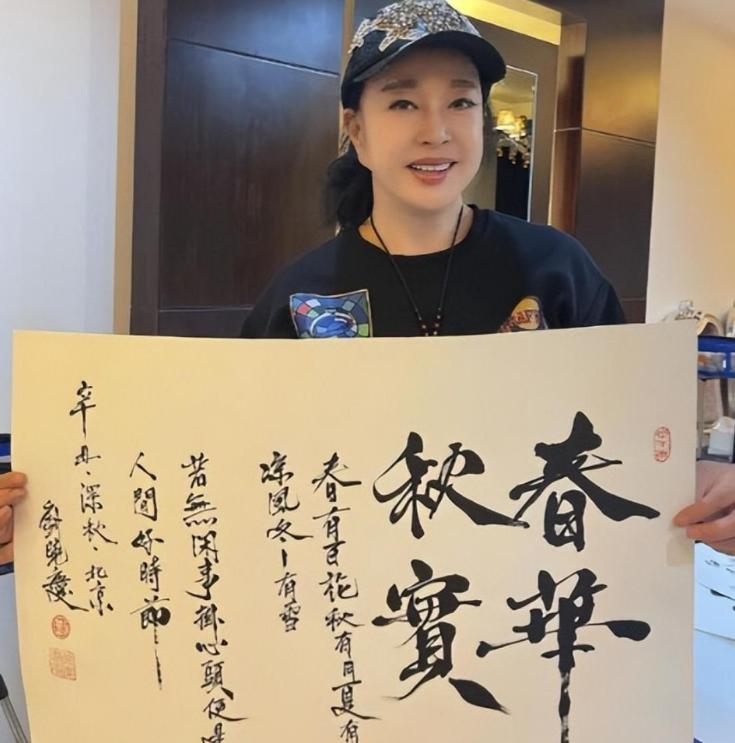 春華
秋實
春有百花秋有月夏有
凉風冬有雪
若無閑事掛心頭便是
人間好時節
辛丑深秋北京
劉曉慶